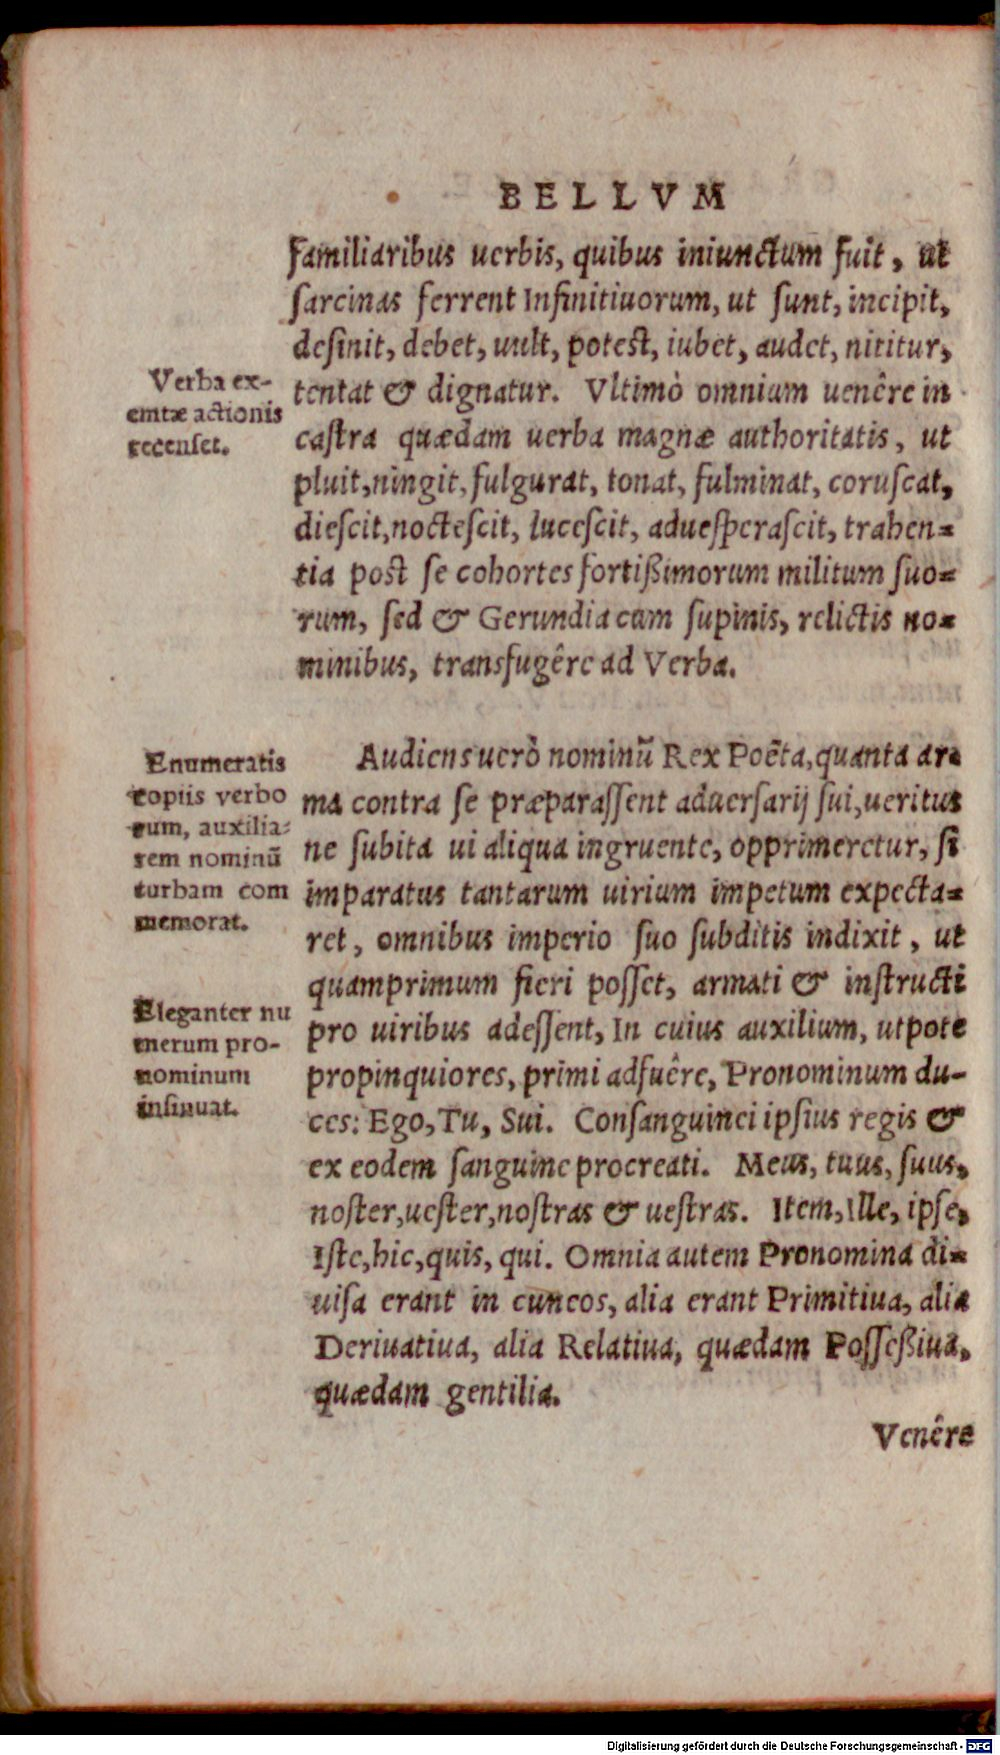 BELLVM
familiaribus uerbis, quibus iniunctum fuit, ut
ſarcinas ferrent Infinitiuorum, ut ſunt, incipit,
deſinit, debet, uult, poteſt, iubet, audet, nititur,
tentat & dignatur. Vltimò omnium uenêre in
caſtra quædam uerba magnæ authoritatis, ut
pluit, ningit, fulgurat, tonat, fulminat, coruſcat,
dieſcit, nocteſcit, luceſcit, adueſperaſcit, trahen=
tia poſt ſe cohortes fortißimorum militum ſuo=
rum, ſed & Gerundia cum ſupinis, relictis no=
minibus, transfugêre ad Verba.
Verba ex-
emtæ actionis
recenſet.
Audiens uerò nominũ Rex Poëta, quanta ar=
ma contra ſe præparaſſent aduerſarij ſui, ueritus
ne ſubita ui aliqua ingruente, opprimeretur, ſi
imparatus tantarum uirium impetum expecta=
ret, omnibus imperio ſuo ſubditis indixit, ut
quamprimum fieri poſſet, armati & inſtructi
pro uiribus adeſſent, In cuius auxilium, utpote
propinquiores, primi adfuêre, Pronominum du-
ces: Ego, Tu, Sui. Conſanguinei ipſius regis &
ex eodem ſanguine procreati. Meus, tuus, ſuus,
noſter, ueſter, noſtras & ueſtras. Item, Ille, ipſe,
Iſte, hic, quis, qui. Omnia autem Pronomina di=
uiſa erant in cuneos, alia erant Primitiua, alia
Deriuatiua, alia Relatiua, quædam Poſſeßiua,
quædam gentilia.
Enumeratis
copiis verbo
rum, auxilia=
rem nominũ
turbam com
memorat.
Eleganter nu
merum pro-
nominum
inſinuat.
Venêre
Digitalisierung gefördert durch die Deutsche Forschungsgemeinschaft - DFG